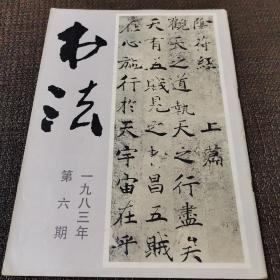 书法
一九八三年
第六期
陰符經 上篇
觀天之道執天之行盡矣
天有五賊見之昌五賊
在心施行於天宇宙在乎